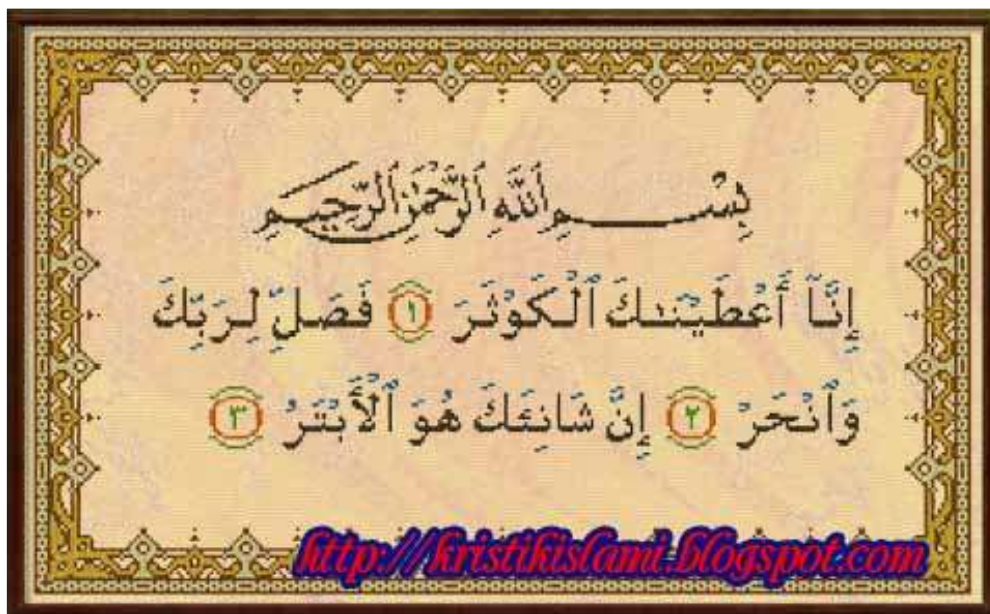 بِسْمِ ٱللَّهِ ٱلرَّحْمَٰنِ ٱلرَّحِيمِ
إِنَّآ أَعْطَيْنَٰكَ ٱلْكَوْثَرَ ١ فَصَلِّ لِرَبِّكَ
وَٱنْحَرْ ٢ إِنَّ شَانِئَكَ هُوَ ٱلْأَبْتَرُ ٣
http://kristikislami.blogspot.com